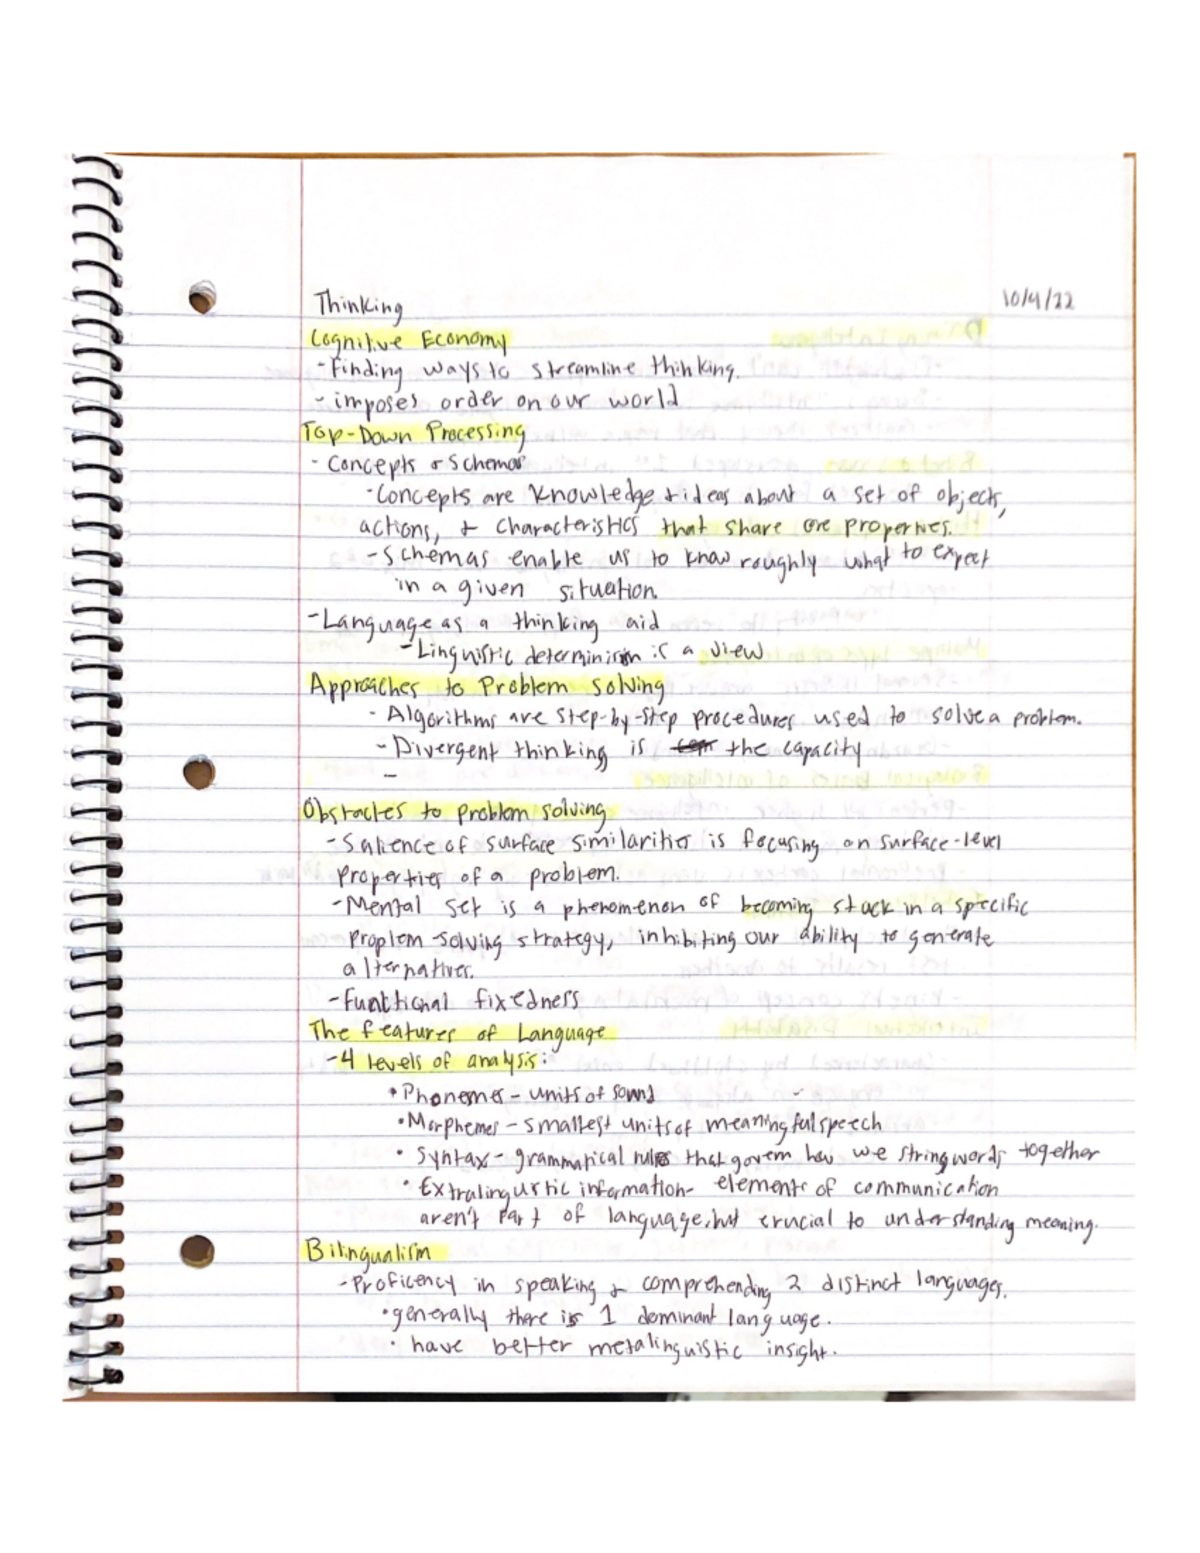 Thinking 10/4/22
Cognitive Economy
- Finding ways to streamline thinking.
- imposes order on our world
Top-Down Processing
- Concepts & Schemas
- Concepts are knowledge & ideas about a set of objects,
actions, & characteristics that share core properties.
- Schemas enable us to know roughly what to expect
in a given situation.
- Language as a thinking aid
- Linguistic determinism is a view
Approaches to Problem solving
- Algorithms are step-by-step procedures used to solve a problem.
- Divergent thinking is the capacity
-
Obstacles to problem solving
- Salience of surface similarities is focusing on surface-level
properties of a problem.
- Mental set is a phenomenon of becoming stuck in a specific
problem-solving strategy, inhibiting our ability to generate
alternatives.
- Functional fixedness
The features of Language
- 4 levels of analysis:
• Phonemes - units of sound
• Morphemes - smallest units of meaningful speech
• Syntax - grammatical rules that govern how we string words together
• Extralinguistic information - elements of communication
aren't part of language, but crucial to understanding meaning.
Bilingualism
- Proficency in speaking & comprehending 2 distinct languages.
• generally there is 1 dominant language.
• have better metalinguistic insight.